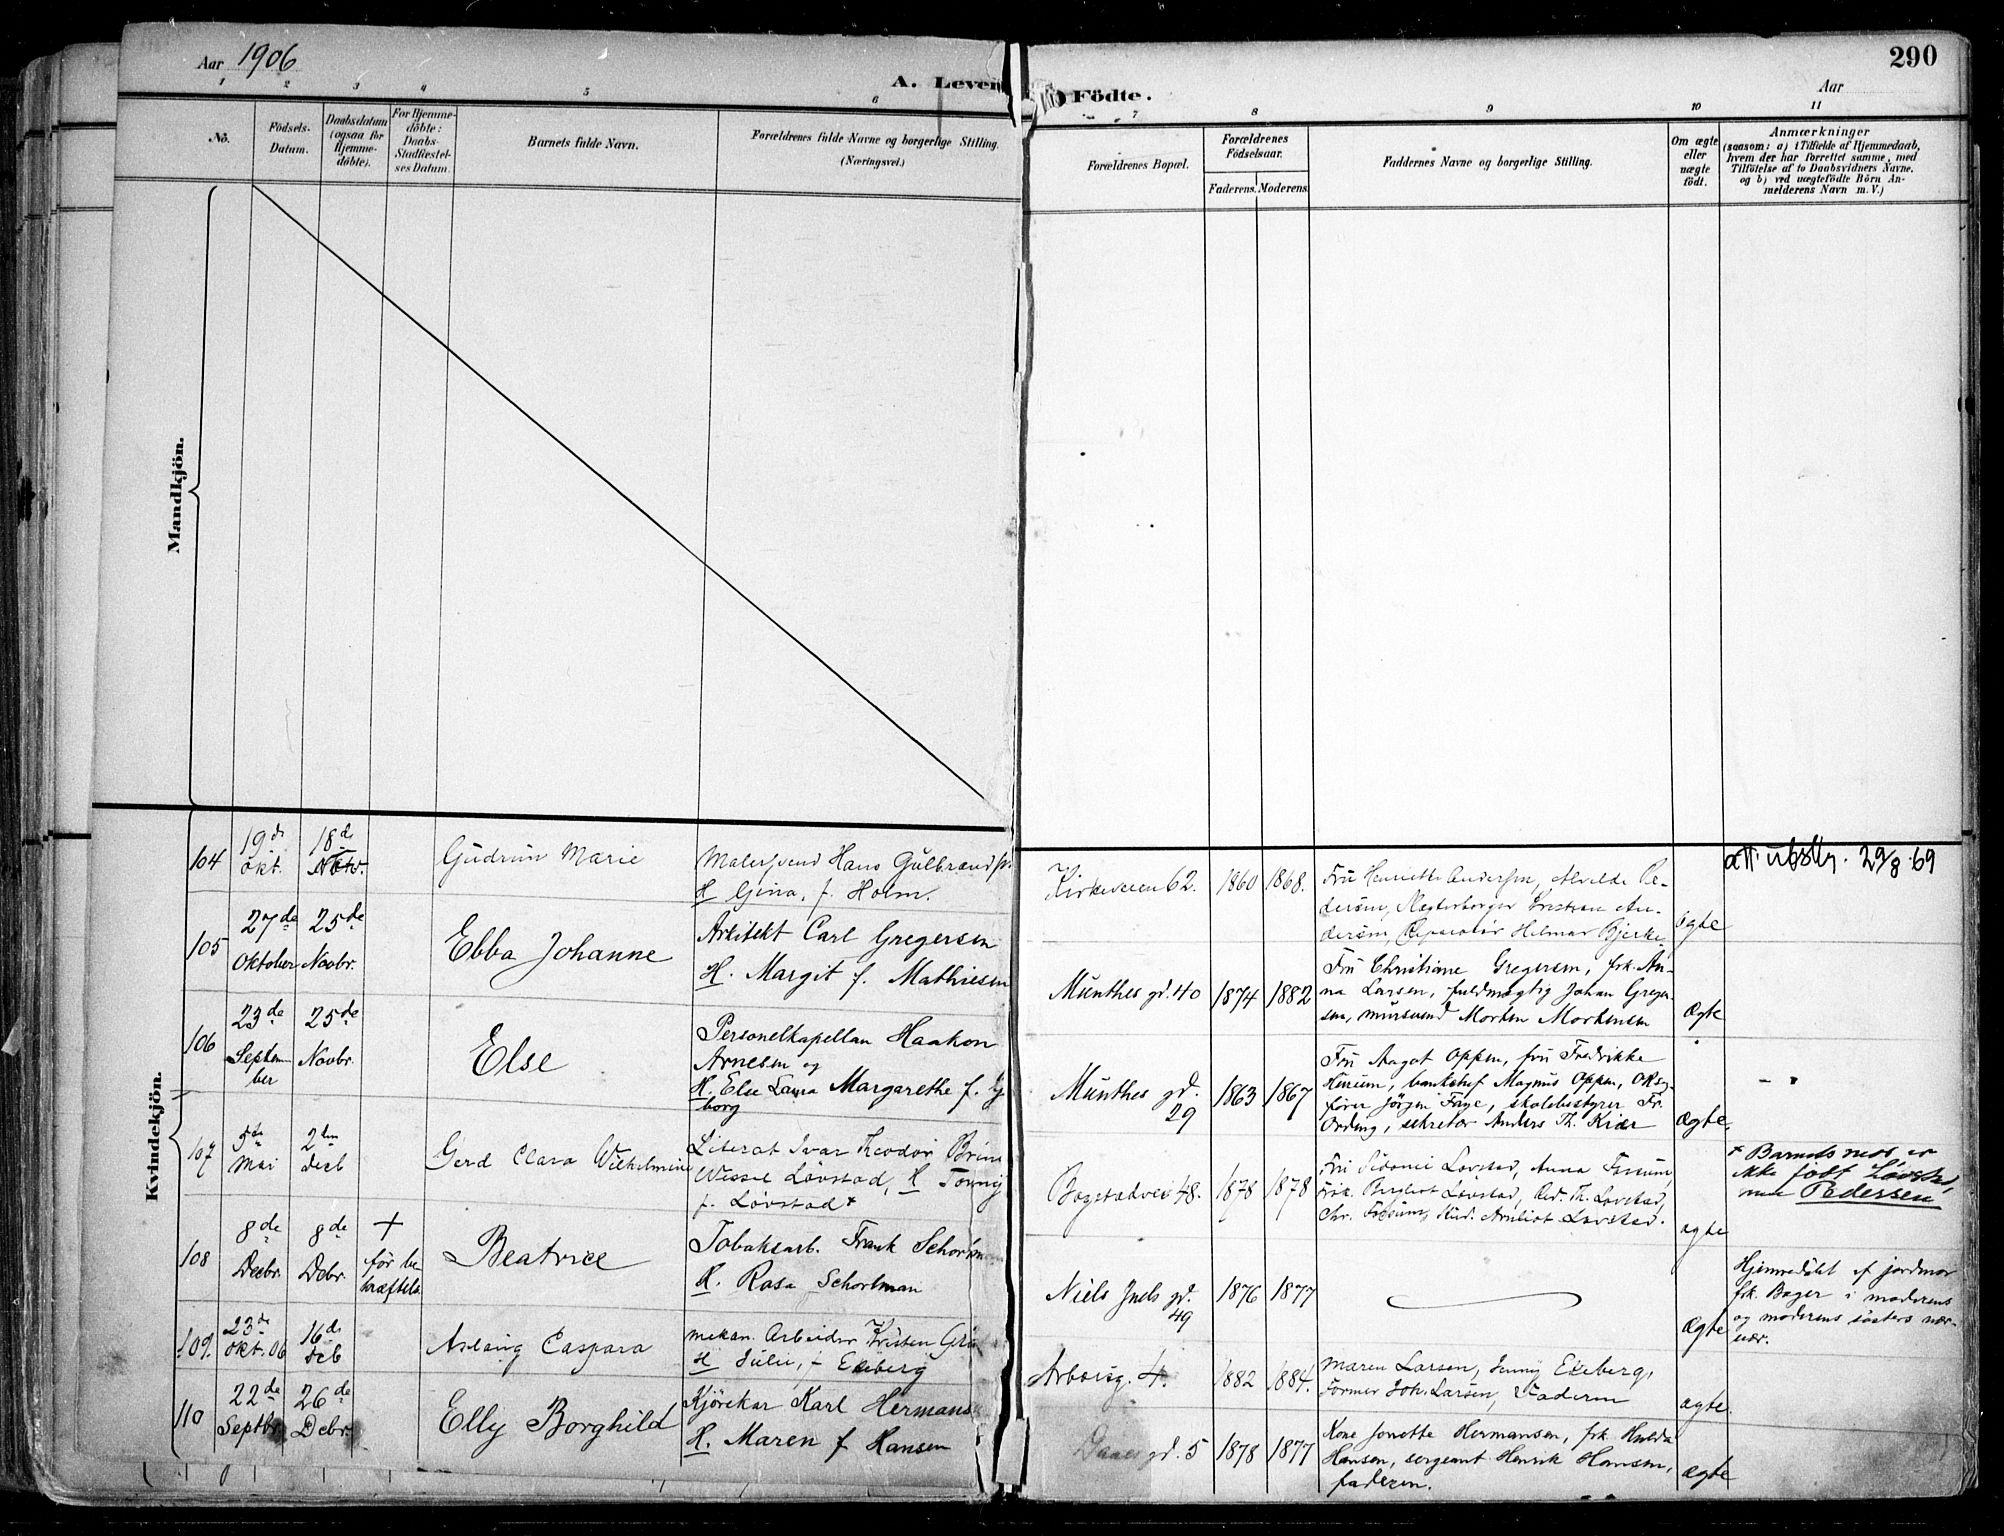 Aar 1906
A. Leven
Födte.
Aar
290
1
2
3
4
5
6
7
8
9
10
11
No.
Födsels-
Datum.
Daabsdatum
(ogsaa for
Hjemme-
döbte).
For Hjemme-
döbte:
Daabs-
Stadfæstel-
ses Datum.
Barnets fulde Navn.
Forældrenes fulde Navne og borgerlige Stilling.
(Næringsvei.)
Forældrenes Bopæl.
Forældrenes
Födselsaar.
Faderens.
Moderens.
Faddernes Navne og borgerlige Stilling.
Om ægte
eller
uægte
födt.
Anmærkninger
(saasom: a) i Tilfælde af Hjemmedaab,
hvem der har forrettet samme, med
Tilföielse af to Daabsvidners Navne.
og b) ved uægtefödte Börn An-
melderens Navn m. V.)
Mandkjön.
Kvindekjön.
104
19de
Okt.
18de
Novbr.
Gudrun Marie
Malersvend Hans Gulbrands
H Gina, f. Holm.
Kirkeveien 62.
1860
1868.
Fru Henriette Andersen, Alvilde Pe-
dersen, Kristian An-
dersen, Hilmar Bjerke
ægte
att. utst. 29/8 69
105
27de
Oktober
25de
Novbr.
Ebba Johanne
Arkitekt Carl Gregersen
H. Margit f. Mathiesen
Munthes gd. 40
1874
1882
Fru Christiane Gregersen, frk. An-
na Larsen, fuldmægtig Johan Greger-
sen, mursvend Morten Mortensen
Ægte
106
23de
Septem
ber
25de
Novbr.
Else
Personelkapellan Haakon
Arnesen og
H. Else Laura Margarethe f.
borg
Munthes gd.
29
1863
1867
Fru Aagot Oppen, fru Fredrikke
bankchef Magnus Oppen, ORsag-
fører Jørgen Faye, skolebestyrer Fr.
Ording, sekretær Anders Th. Kiær
Ægte.
- "
107
5te
Mai
2den
Decb
Gerd Clara Wilhelmine
Literat Ivar Theodor
Wessel Løvstad, H
f. Løvstad +
Bogstadvei 48.
1878
1878
Fru Sidonie Løvstad, Anna Fossum,
Frk. Løvstad, Th. Løvstad,
Chr. Fossum, Stud. Arnliot Løvstad.
ægte
+ Barnets mor er
ikke født Løvstad,
men Pedersen
108
8de
Decbr.
8de
Dcbr.
+
før be
kræftels.
Beatrice
Tobaksarb. Frank
H. Rosa Schortman
Niels Juels gd.
49
1876
1877
Ægte
Hjemmedøbt af jordmor
frk. Bager i moderens
og moderens søsters nær-
vær.
109.
23de
Okt. 06
16de
Decb
Aslaug Caspara
mekan. Arbeider Kristen
H Julie, f. Ekeberg
Arbosg. 4.
1882
1884.
Maren Larsen, Jenny Ekeberg,
Former Joh. Larsen, Faderen
ægte.
110
22de
Septbr.
26de
Dcbr.
Elly Borghild
Kjörekar Karl Hermans
H. Maren f. Hansen
Daas gd. 5
1878
1877
Kone Jonette Hermansen, frk. Hulda
Hansen, sergeant Henrik Hansen,
faderen.
Ægte